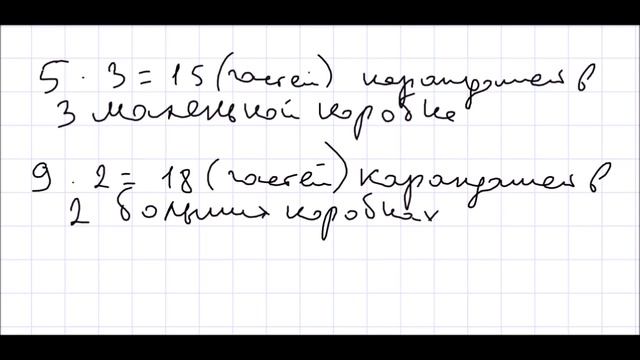 5 · 3 = 15 (частей) карандашей в
3 маленькой коробке
9 · 2 = 18 (частей) карандашей в
2 больших коробках